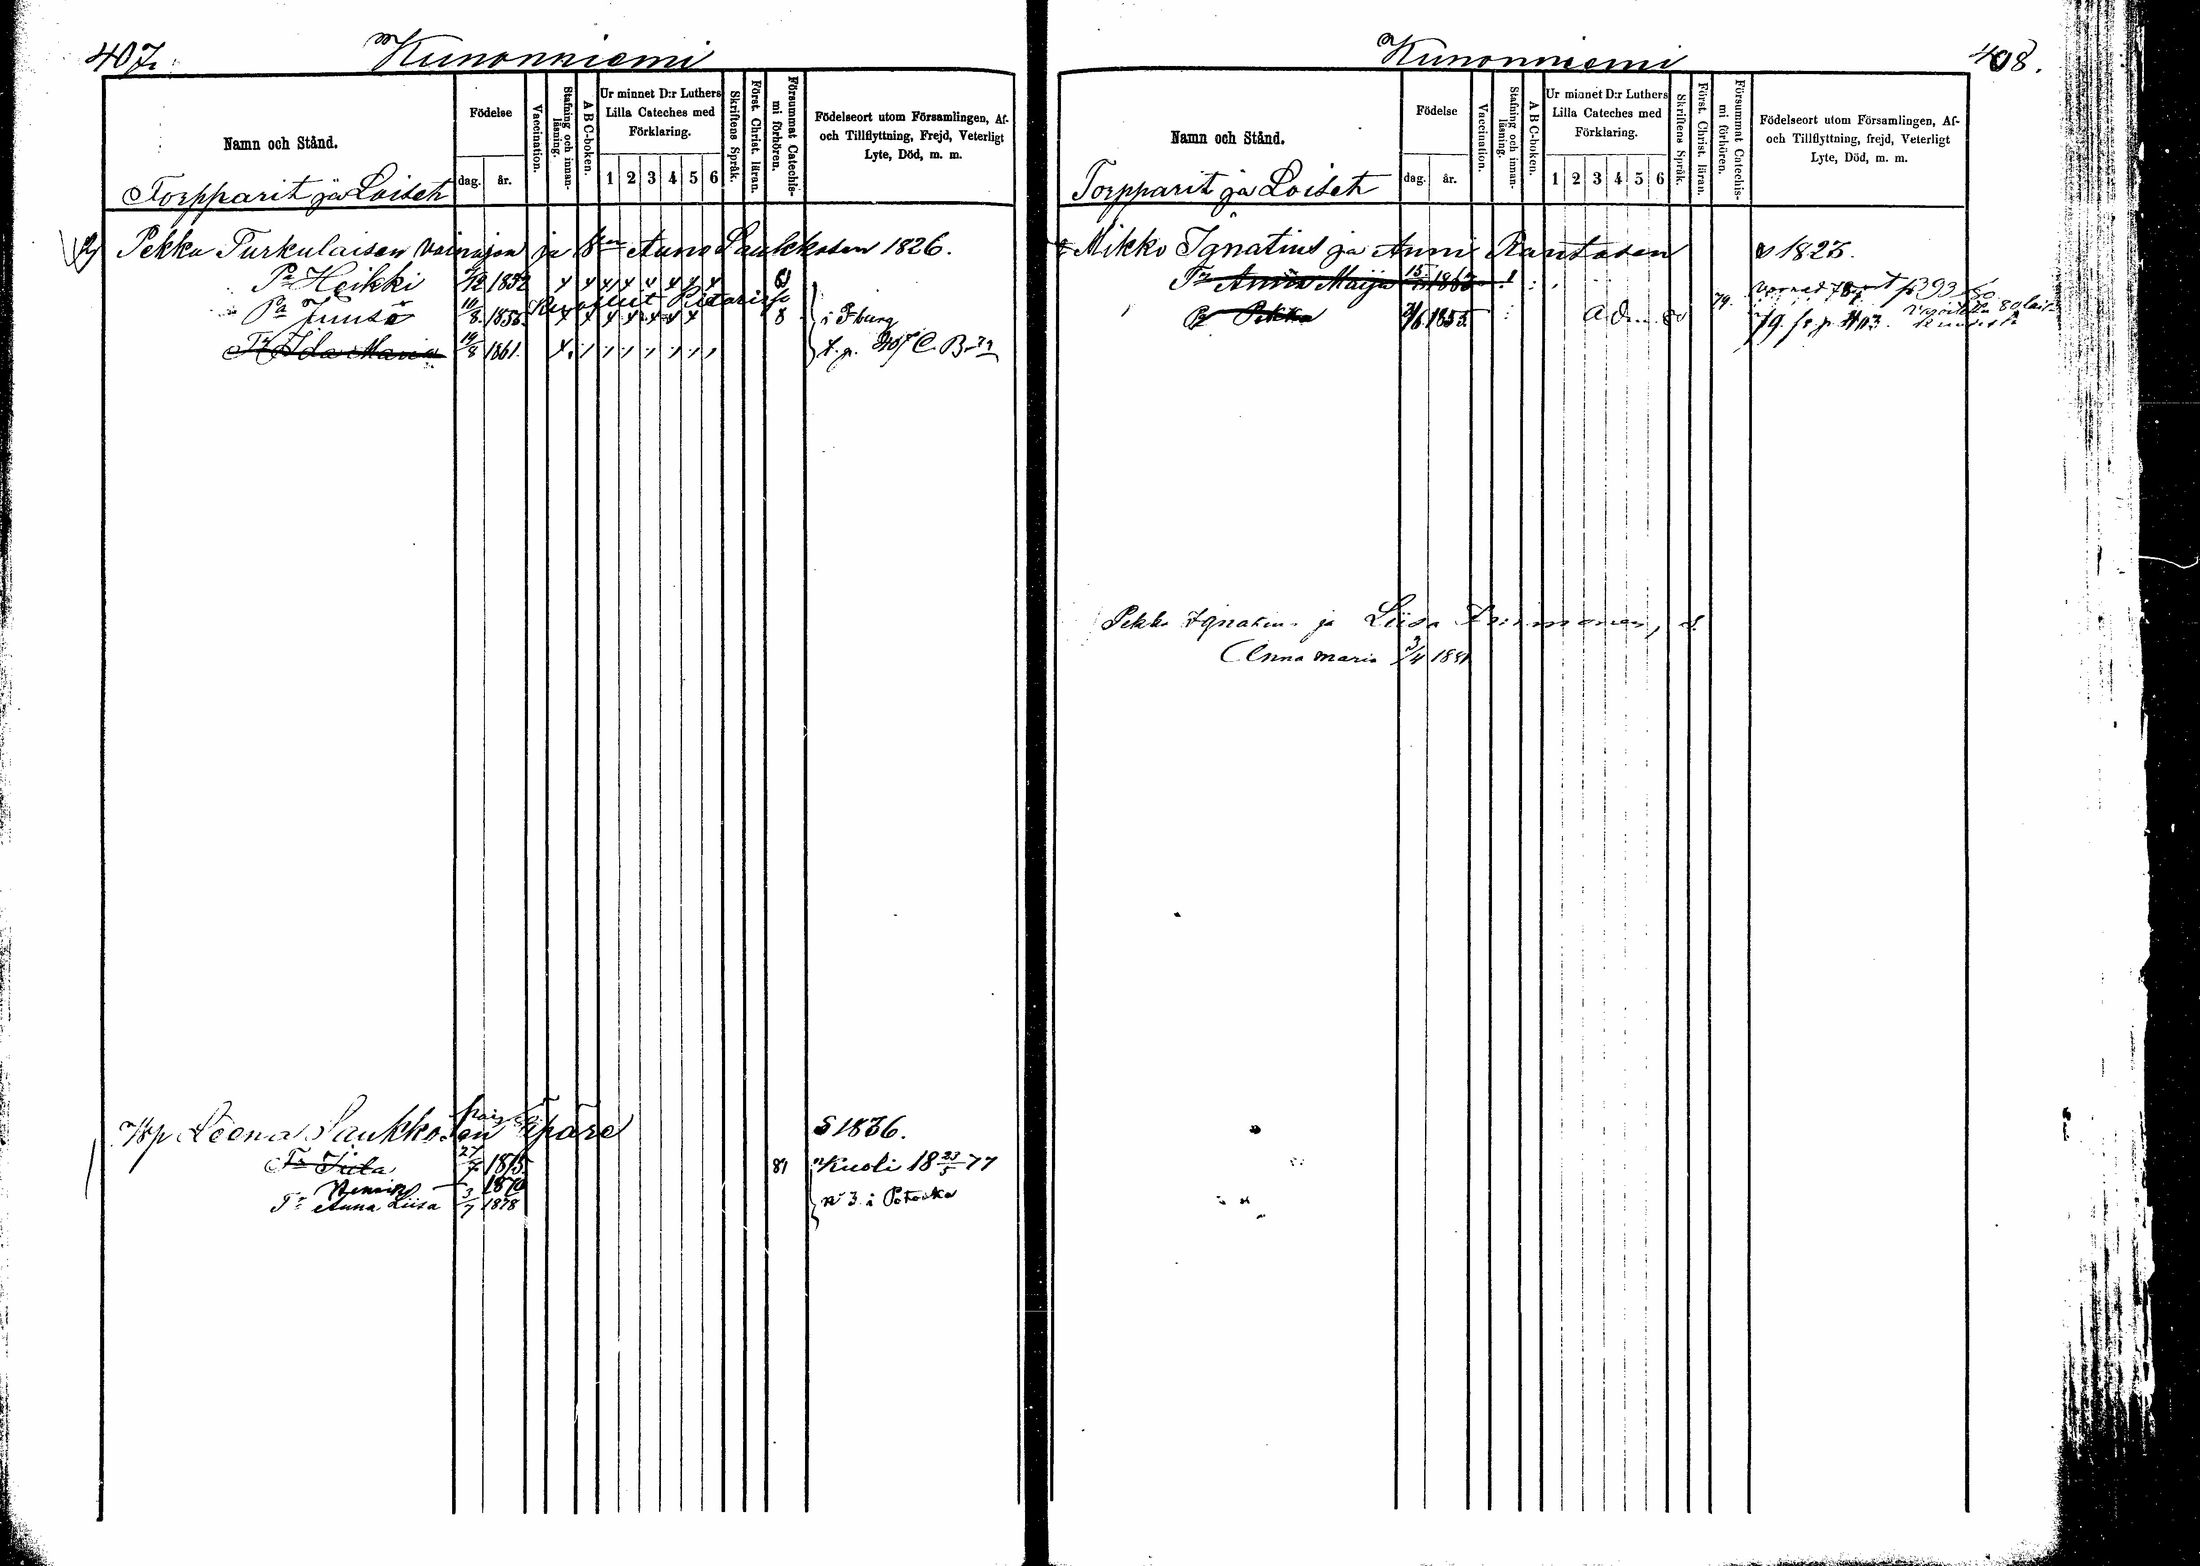 407.
Kunonniemi
Namn och Stånd.
Födelse
dag.
år.
Vaccination.
Stafning och innan-läsning.
A B C-boken.
Ur minnet D:r Luthers
Lilla Cateches med
Förklaring.
1 2 3 4 5 6
Skriftens Språk.
Först. Christ. läran.
Försummat Catechis-mi förhören.
Födelseort utom Församlingen, Af-
och Tillflyttning, Frejd, Veterligt
Lyte, Död, m. m.
Torpparit ja Loiset
Pekka Turkulaisen vainajan ja Anna Laukkosen 1826.
Pa Heikki 1852
Pa Juuso 10/8 1856 8 i Pburg
Tr Ida Maria 1861.
Leena Laukkosen äpäre S 1836.
Tr Iida 27 1875 81 Kuoli 18 23/5 77
1870
Tr Anna Liisa 3/7 1878 n 3 i
408.
Kunonniemi
Namn och Stånd.
Födelse
dag.
år.
Vaccination.
Stafning och innan-läsning.
A B C-boken.
Ur minnet D:r Luthers
Lilla Cateches med
Förklaring.
1 2 3 4 5 6
Skriftens Språk.
Först. Christ. läran.
Försummat Catechis-mi förhören.
Födelseort utom Församlingen, Af-
och Tillflyttning, frejd, Veterligt
Lyte, Död, m. m.
Torpparit ja Loiset
Mikko Ignatius ja Anni Rantasen 1823.
Tr Anna Maija 15 1863
Pekka 1855. 79.
Pekka Ignatius ja Liisa
Anna Maria 3/4 1881